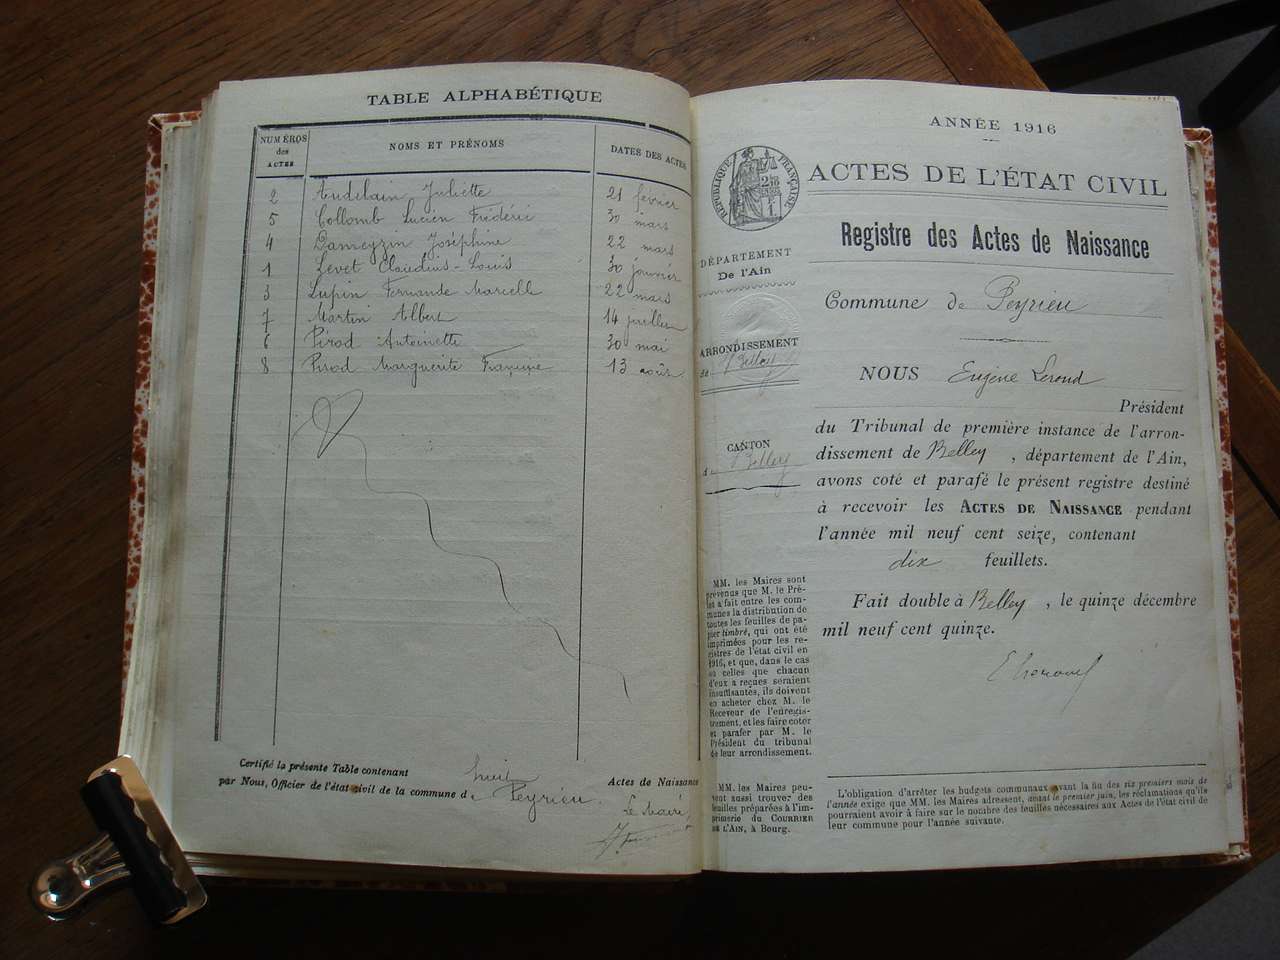 TABLE ALPHABÉTIQUE
NUMÉROS
des
ACTES
NOMS ET PRÉNOMS
DATES DES ACTES
2 Audelain Juliette 21 février
5 Collomb Lucien Frédéric 30 mars
4 Dameyzin Joséphine 22 mars
1 Levet Claudius-Louis 30 janvier
3 Lupin Fernande Marcelle 22 mars
7 Martin Albert 14 juillet
6 Pirod Antoinette 30 mai
8 Pirod Marguerite Françoise 13 août
Certifié la présente Table contenant huit Actes de Naissance
par Nous, Officier de l'état civil de la commune d Peyrieu.
Le Maire
ANNÉE 1916
ACTES DE L'ÉTAT CIVIL
RÉPUBLIQUE FRANÇAISE
Registre des Actes de Naissance
DÉPARTEMENT
De l'Ain
Commune de Peyrieu
ARRONDISSEMENT
de Belley
CANTON
d Belley
NOUS Eugène Lerond
Président
du Tribunal de première instance de l'arron-
dissement de Belley, département de l'Ain,
avons coté et parafé le présent registre destiné
à recevoir les ACTES DE NAISSANCE pendant
l'année mil neuf cent seize, contenant
dix feuillets.
Fait double à Belley, le quinze décembre
mil neuf cent quinze.
MM. les Maires sont
prévenus que M. le Pré-
fet a fait entre les com-
munes la distribution de
toutes les feuilles de pa-
pier timbré, qui ont été
imprimées pour les re-
gistres de l'état civil en
1916, et que, dans le cas
où celles que chacun
d'eux a reçues seraient
insuffisantes, ils doivent
en acheter chez M. le
Receveur de l'enregis-
trement, et les faire coter
et parafer par M. le
Président du tribunal
de leur arrondissement.
MM. les Maires peu-
vent aussi trouver des
feuilles préparées à l'im-
primerie du COURRIER
DE L'AIN, à Bourg.
L'obligation d'arrêter les budgets communaux avant la fin des six premiers mois de
l'année exige que MM. les Maires adressent, avant le premier juin, les réclamations qu'ils
pourraient avoir à faire sur le nombre des feuilles nécessaires aux Actes de l'état civil de
leur commune pour l'année suivante.